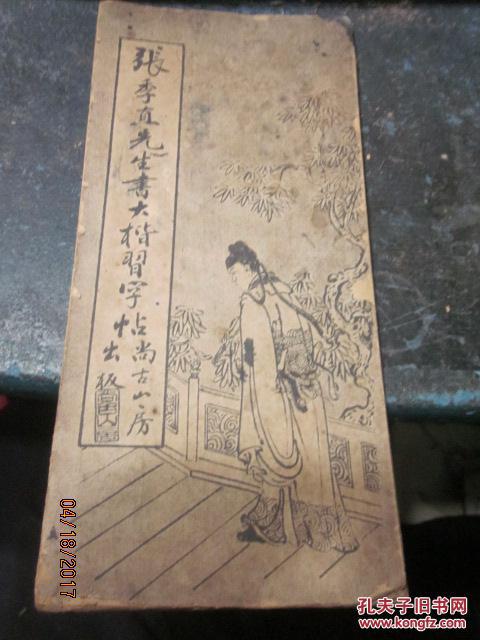 張季直先生書大楷習字帖
尚古山房
出版
04/18/2017
孔夫子旧书网
www.kongfz.com